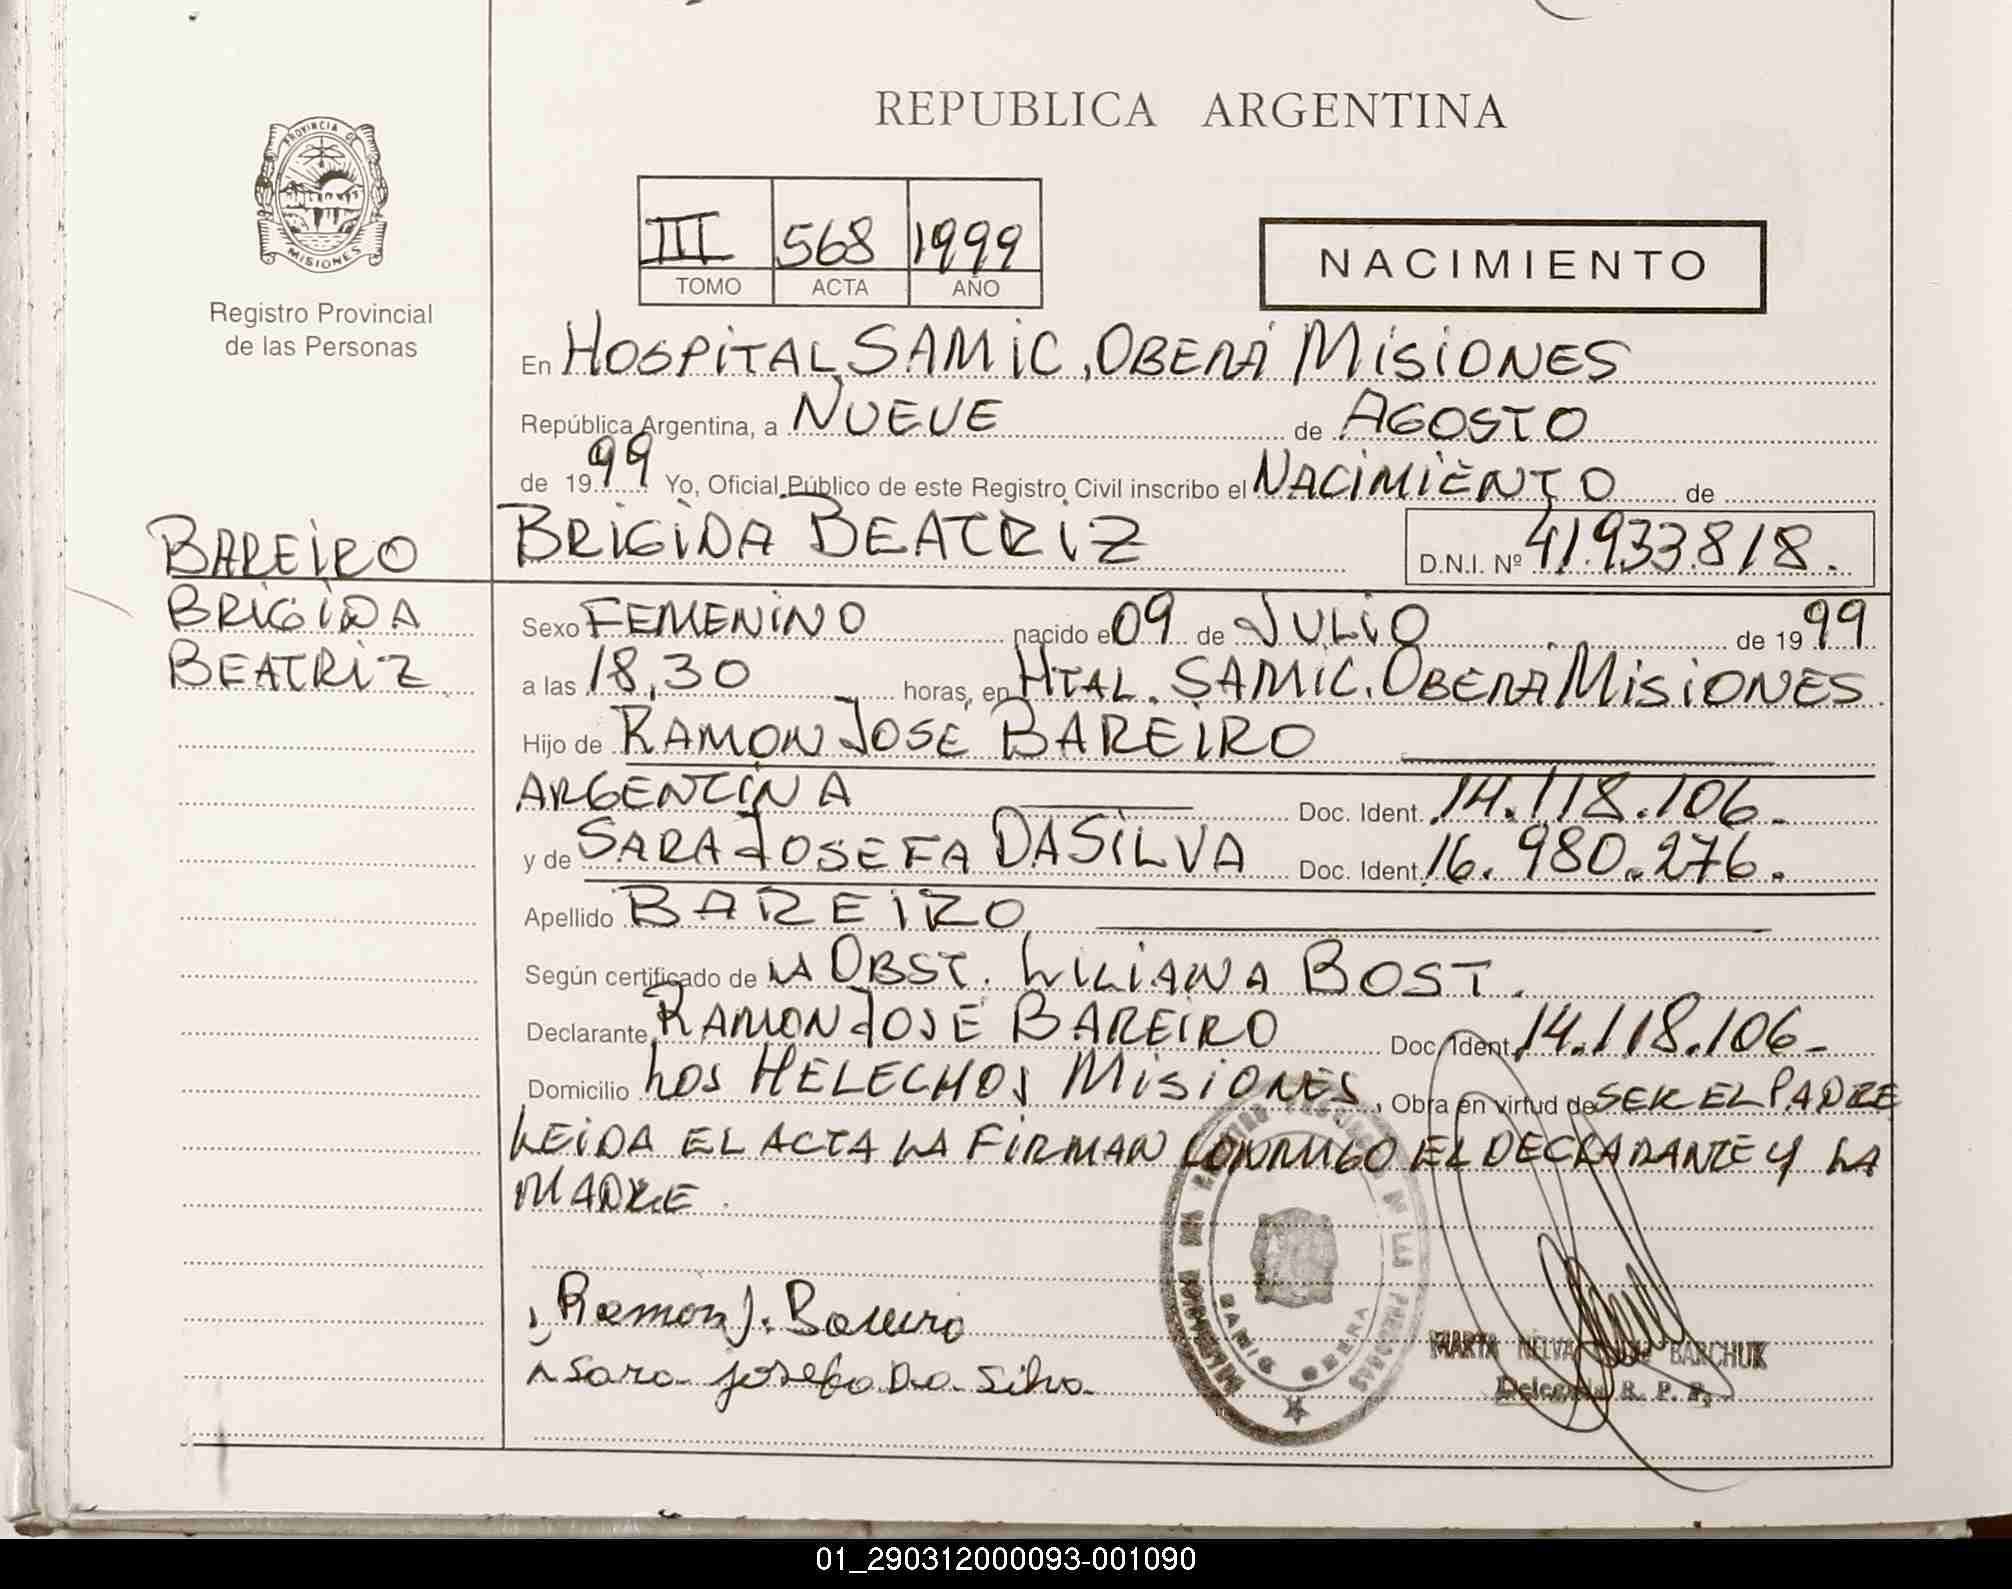 REPUBLICA ARGENTINA
PROVINCIA DE MISIONES
Registro Provincial
de las Personas
III 568 1999
TOMO ACTA AÑO
NACIMIENTO
En HOSPITAL SAMIC, OBERÁ MISIONES
República Argentina, a NUEVE de AGOSTO
de 1999 Yo, Oficial Público de este Registro Civil inscribo el NACIMIENTO de
BAREIRO
BRIGIDA
BEATRIZ
BRIGIDA BEATRIZ D.N.I. Nº 41.933.818.
Sexo FEMENINO nacido el 09 de JULIO de 1999
a las 18,30 horas, en HTAL. SAMIC. OBERÁ MISIONES
Hijo de RAMON JOSE BAREIRO
ARGENTINA Doc. Ident. 14.118.106.
y de SARA JOSEFA DA SILVA Doc. Ident. 16.980.276.
Apellido BAREIRO
Según certificado de LA OBST. LILIANA BOST.
Declarante RAMON JOSE BAREIRO Doc. Ident. 14.118.106-
Domicilio LOS HELECHOS MISIONES, Obra en virtud de SER EL PADRE
LEIDA EL ACTA LA FIRMAN CONMIGO EL DECLARANTE Y LA
MADRE.
Ramon J. Bareiro
Sara Josefa Da Silva
OBERA
MARTA NELVA BARCHUK
Delegada R. P. P.
01_290312000093-001090